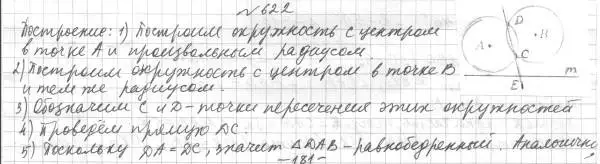 №622
Построение: 1) Построим окружность с центром
в точке А и произвольным радиусом.
2) Построим окружность с центром в точке В
и тем же радиусом.
3) Обозначим С и D - точки пересечения этих окружностей
4) Проведём прямую DC.
5) Поскольку DA = DC, значит ΔDAB - равнобедренный. Аналогично
-181-
A
D
B
C
E
m